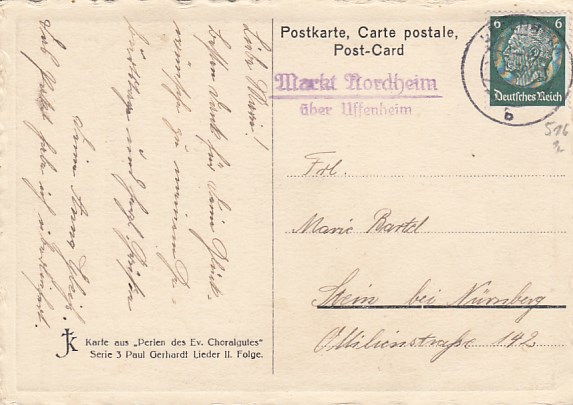 Postkarte, Carte postale,
Post-Card
6 6
Deutsches Reich
b
Markt Nordheim
über Uffenheim
516
Frl.
Marie Bartel
Stein bei Nürnberg
Ottilienstraße 192
Liebe Marie!
Besten Dank für Deine Glück-
wünsche zu meinem Ge-
burtstage und herzl. Grüße
Deine Anna
Das Paket habe ich
JK
Karte aus „Perlen des Ev. Choralgutes"
Serie 3 Paul Gerhardt Lieder II. Folge.